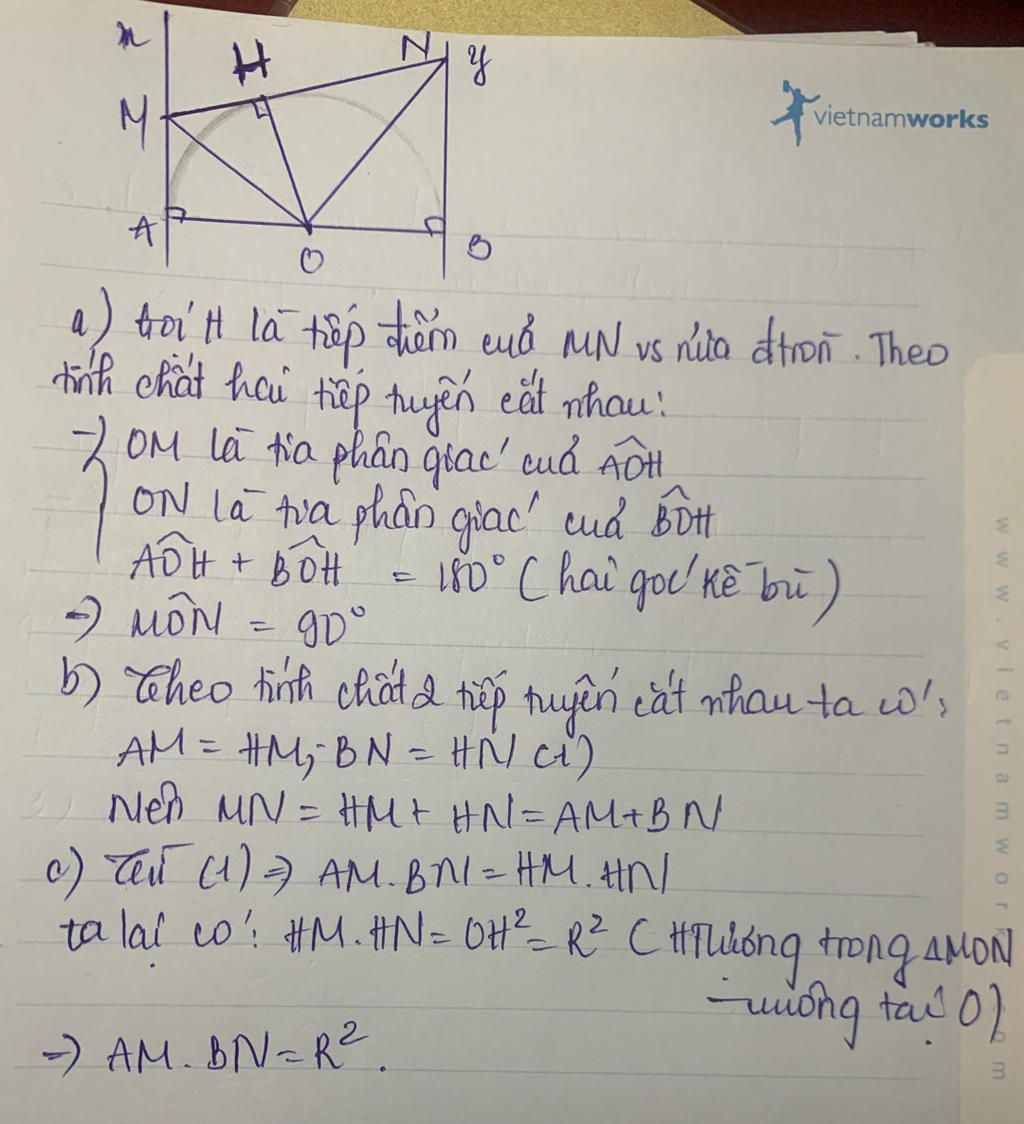 x
H
N
y
M
vietnamworks
A
O
B
a) Gọi H là tiếp điểm của MN vs nửa đtròn. Theo
tính chất hai tiếp tuyến cắt nhau:
=> OM là tia phân giác của AÔH
ON là tia phân giác của BÔH
AÔH + BÔH = 180° (hai góc kề bù)
=> MÔN = 90°
b) Theo tính chất 2 tiếp tuyến cắt nhau ta có:
AM = HM; BN = HN (1)
Nên MN = HM + HN = AM + BN
c) Từ (1) => AM.BN = HM.HN
ta lại có: HM.HN = OH² = R² (HTLượng trong ΔMON
vuông tại O)
=> AM.BN = R².
www.vietnamworks.com